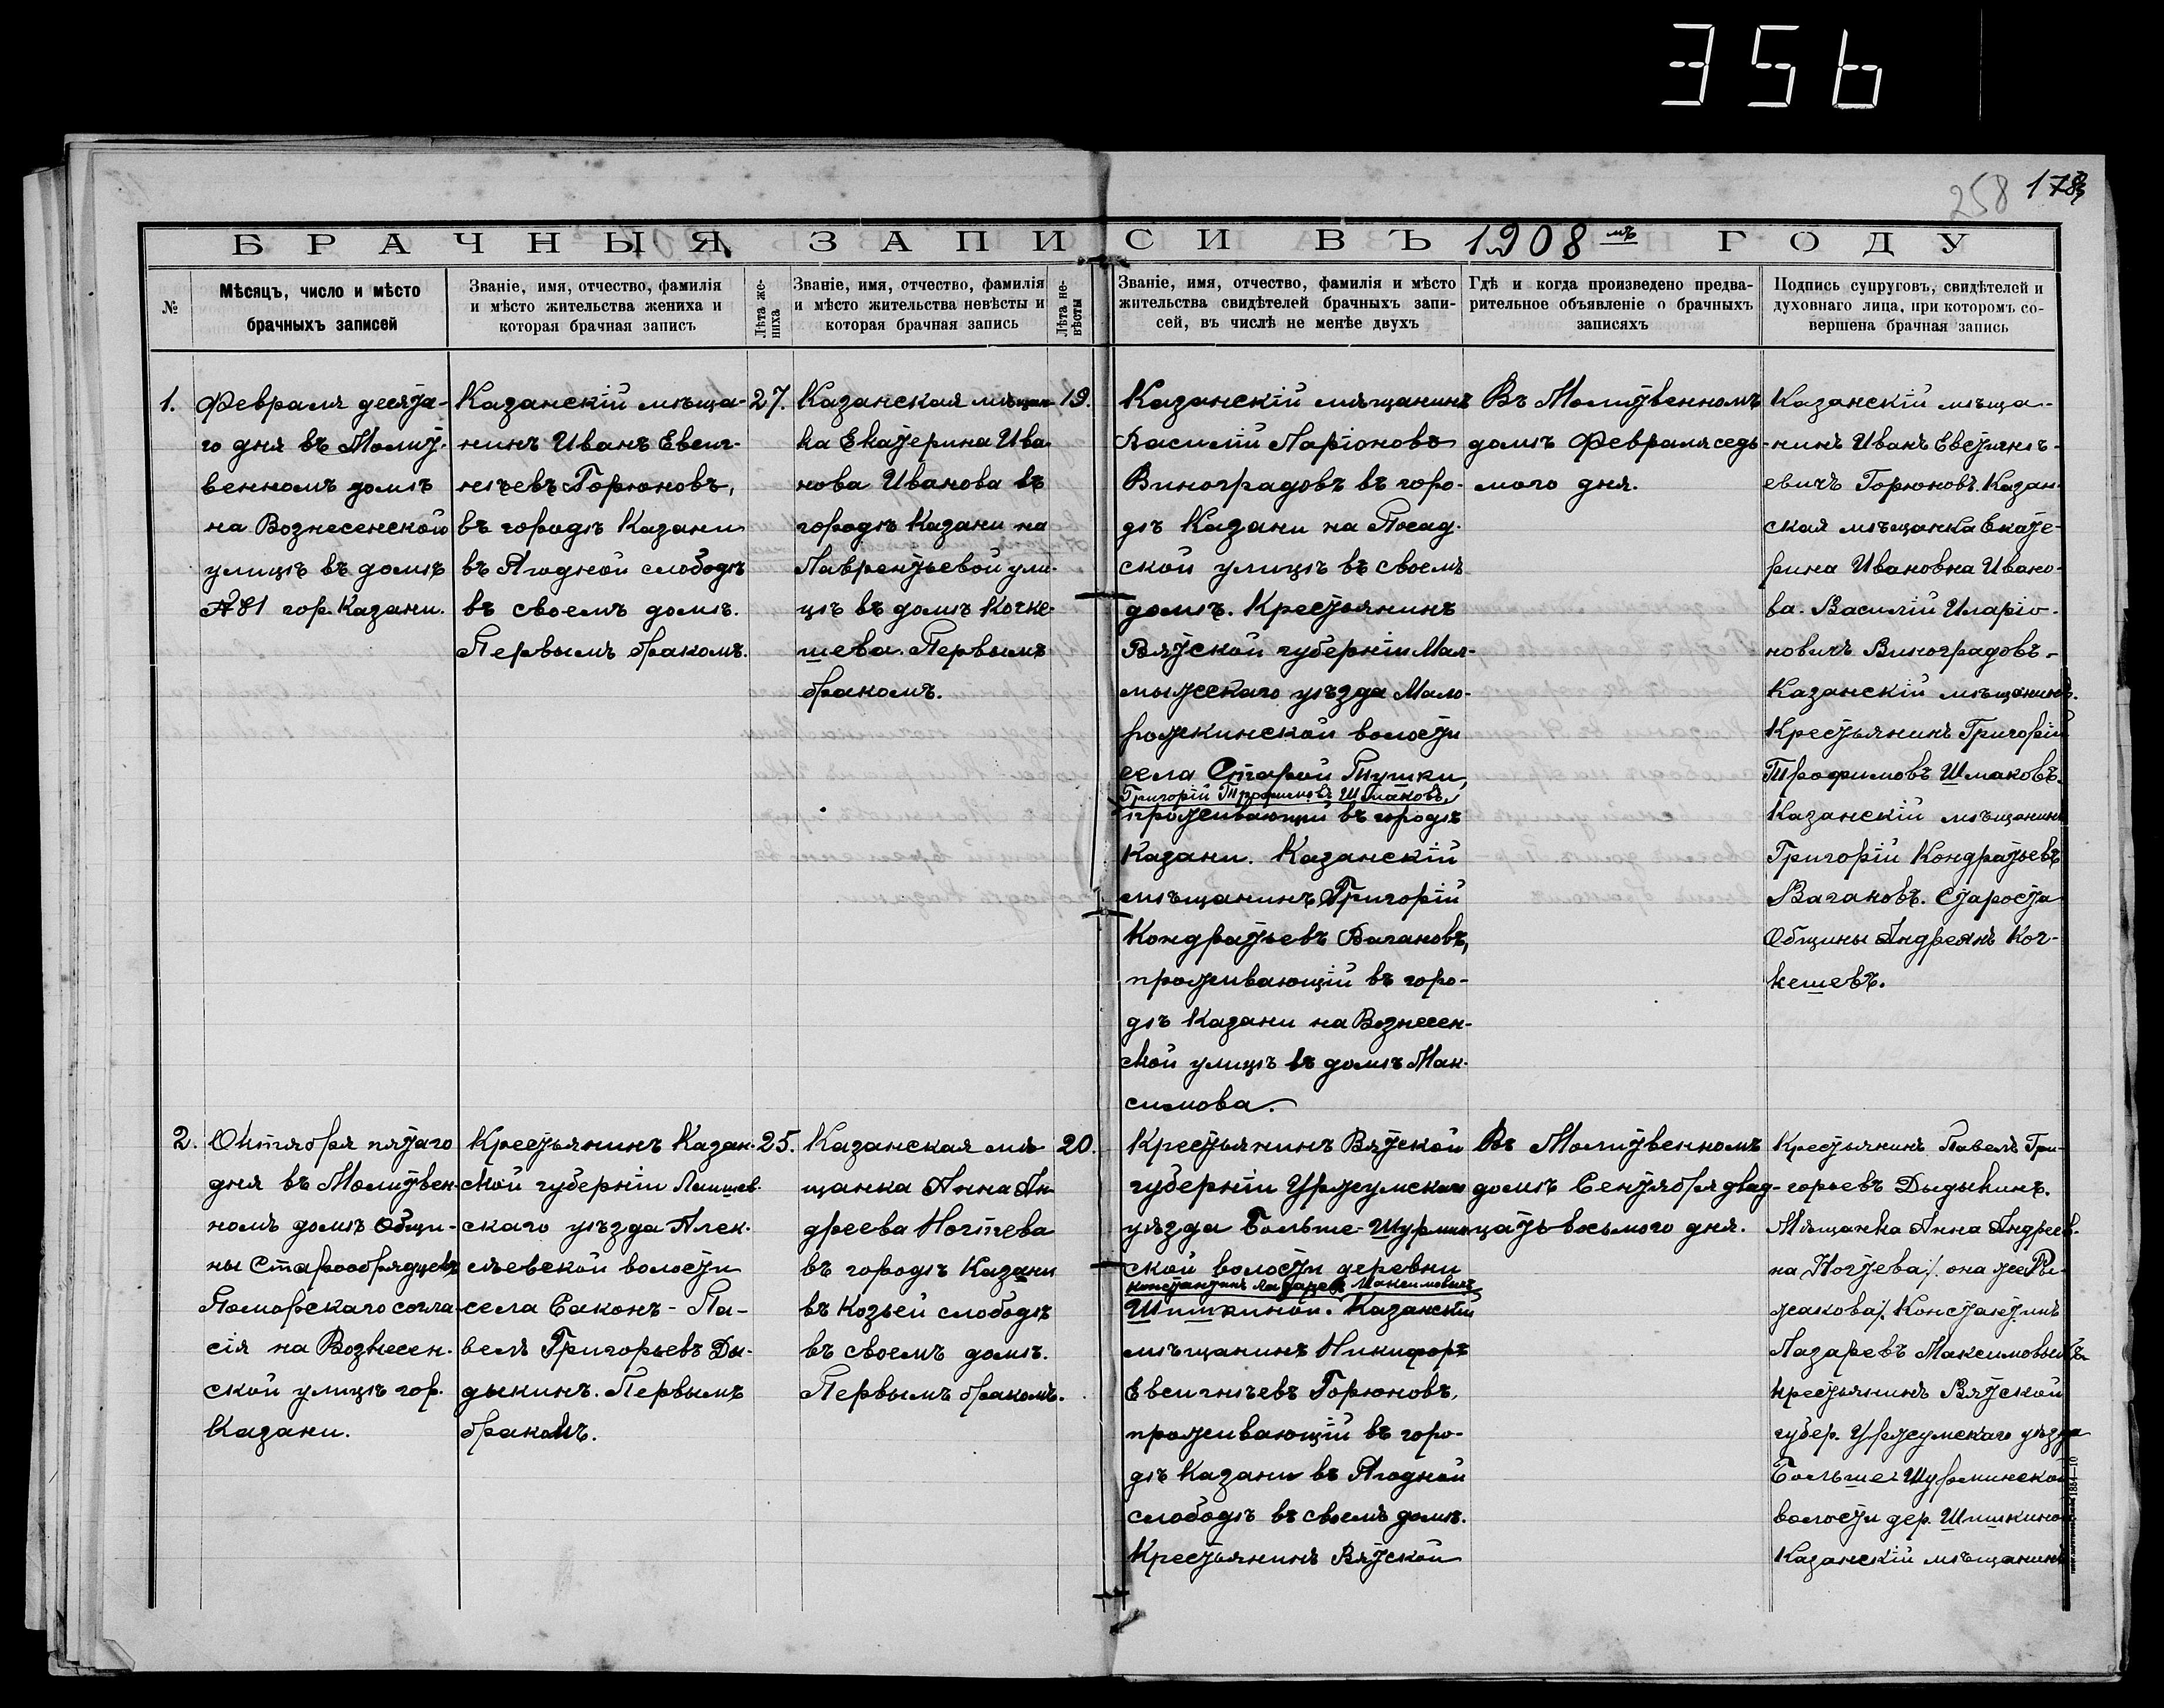 356
258 178
БРАЧНЫЯ ЗАПИСИ ВЪ 1908 мъ ГОДУ
№
Мѣсяцъ, число и мѣсто
брачныхъ записей
Званіе, имя, отчество, фамилія
и мѣсто жительства жениха и
которая брачная запись
Лѣта же-
ниха
Званіе, имя, отчество, фамилія
и мѣсто жительства невѣсты и
которая брачная запись
Лѣта не-
вѣсты
Званіе, имя, отчество, фамилія и мѣсто
жительства свидѣтелей брачныхъ запи-
сей, въ числѣ не менѣе двухъ
Гдѣ и когда произведено предва-
рительное объявленіе о брачныхъ
записяхъ
Подпись супруговъ, свидѣтелей и
духовнаго лица, при которомъ со-
вершена брачная запись
1.
Февраля десята-
го дня въ Молит-
венномъ домѣ
на Вознесенской
улицѣ въ домѣ
№81 гор. Казани.
Казанскій мѣща-
нинъ Иванъ Евсиг-
нѣевъ Горюновъ,
въ городѣ Казани
въ Ягодной слободѣ
въ своемъ домѣ.
Первымъ бракомъ.
27.
Казанская мѣщан-
ка Екатерина Ива
нова Иванова въ
городѣ Казани на
Лаврентьевой ули-
цѣ въ домѣ Кочке-
шева. Первымъ
бракомъ.
19.
Казанскій мѣщанинъ
Василій Ларіоновъ
Виноградовъ въ горо-
дѣ Казани на Посад-
ской улицѣ въ своемъ
домѣ. Крестьянинъ
Вятской губерніи Мал-
мыжскаго уѣзда Мало-
рожкинской волости
села Старой Тушки,
Григорій Трофимовъ Шмаковъ,
проживающій въ городѣ
Казани. Казанскій
мѣщанинъ Григорій
Кондратьевъ Вагановъ,
проживающій въ горо-
дѣ Казани на Вознесен-
ской улицѣ въ домѣ Мак-
симова.
Въ Молитвенномъ
домѣ Февраля седь-
мого дня.
Казанскій мѣща-
нинъ Иванъ Евстигнѣ-
евичъ Горюновъ. Казан-
ская мѣщанка Екате-
рина Ивановна Ивано-
ва. Василій Иларіо-
новичъ Виноградовъ-
Казанскій мѣщанинъ.
Крестьянинъ Григорій
Трофимовъ Шмаковъ.
Казанскій мѣщанинъ
Григорій Кондратьевъ
Вагановъ. Староста
Общины Андреянъ Коч-
кешевъ.
2.
Октября пятаго
дня въ Молитвен-
номъ домѣ Общи-
ны Старообрядцевъ
Поморскаго согла-
сія на Вознесен-
ской улицѣ гор.
Казани.
Крестьянинъ Казан-
ской губерніи Лаишев-
скаго уѣзда Алек-
сѣевской волости
села Саконъ - Па-
велъ Григорьевъ Ды-
дыкинъ. Первымъ
бракомъ.
25.
Казанская мѣ-
щанка Анна Ан-
дреева Ногтева
въ городѣ Казани
въ Козьей слободѣ
въ своемъ домѣ.
Первымъ бракомъ.
20.
Крестьянинъ Вятской
губерніи Уржумскаго
уѣзда Больше-Шурмин-
ской волости деревни
Константинъ Лазаревъ Максимовыхъ
Шишкиной. Казанскій
мѣщанинъ Никифоръ
Евсигнѣевъ Горюновъ,
проживающій въ горо-
дѣ Казани въ Ягодной
слободѣ въ своемъ домѣ.
Крестьянинъ Вятской
Въ Молитвенномъ
домѣ Сентября двад-
цать восьмого дня.
Крестьянинъ Павелъ Гри-
горьевъ Дыдыкинъ.
Мѣщанка Анна Андреев-
на Ногтева /. она же Ры-
жакова/. Константинъ
Лазаревъ Максимовыхъ
крестьянинъ Вятской
губер. Уржумскаго уѣзда
Больше-Шурминской
волости дер. Шишкиной
Казанскій мѣщанинъ